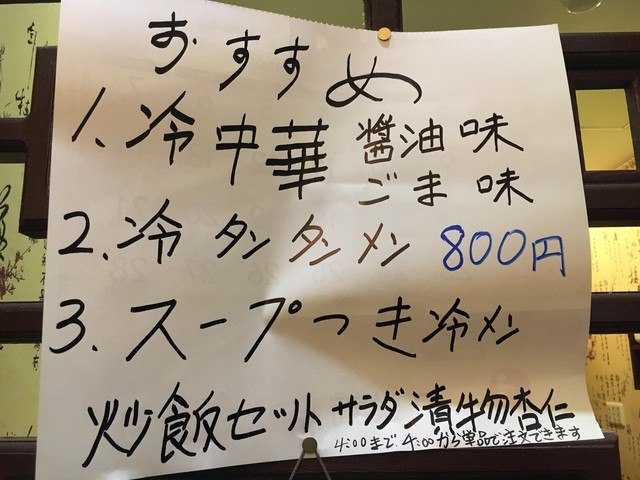 おすすめ
1. 冷中華 醤油味
ごま味
2. 冷タンタンメン 800円
3. スープつき冷メン
炒飯セットサラダ漬物杏仁
4:00まで. 4:00から単品で注文できます